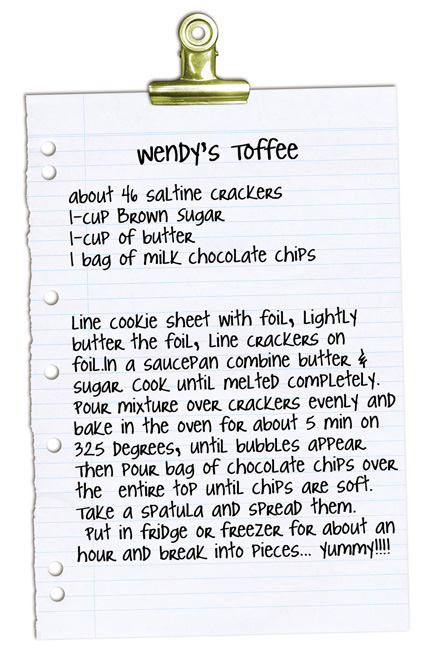 Wendy's Toffee
about 46 saltine crackers
1-cup Brown Sugar
1-cup of butter
1 bag of milk chocolate chips
Line cookie sheet with foil, Lightly
butter the foil, Line crackers on
foil.In a saucepan combine butter &
sugar. Cook until melted completely.
Pour mixture over crackers evenly and
bake in the oven for about 5 min on
325 Degrees, until bubbles appear
Then pour bag of chocolate chips over
the entire top until chips are soft.
Take a spatula and spread them.
Put in fridge or freezer for about an
hour and break into pieces... Yummy!!!!